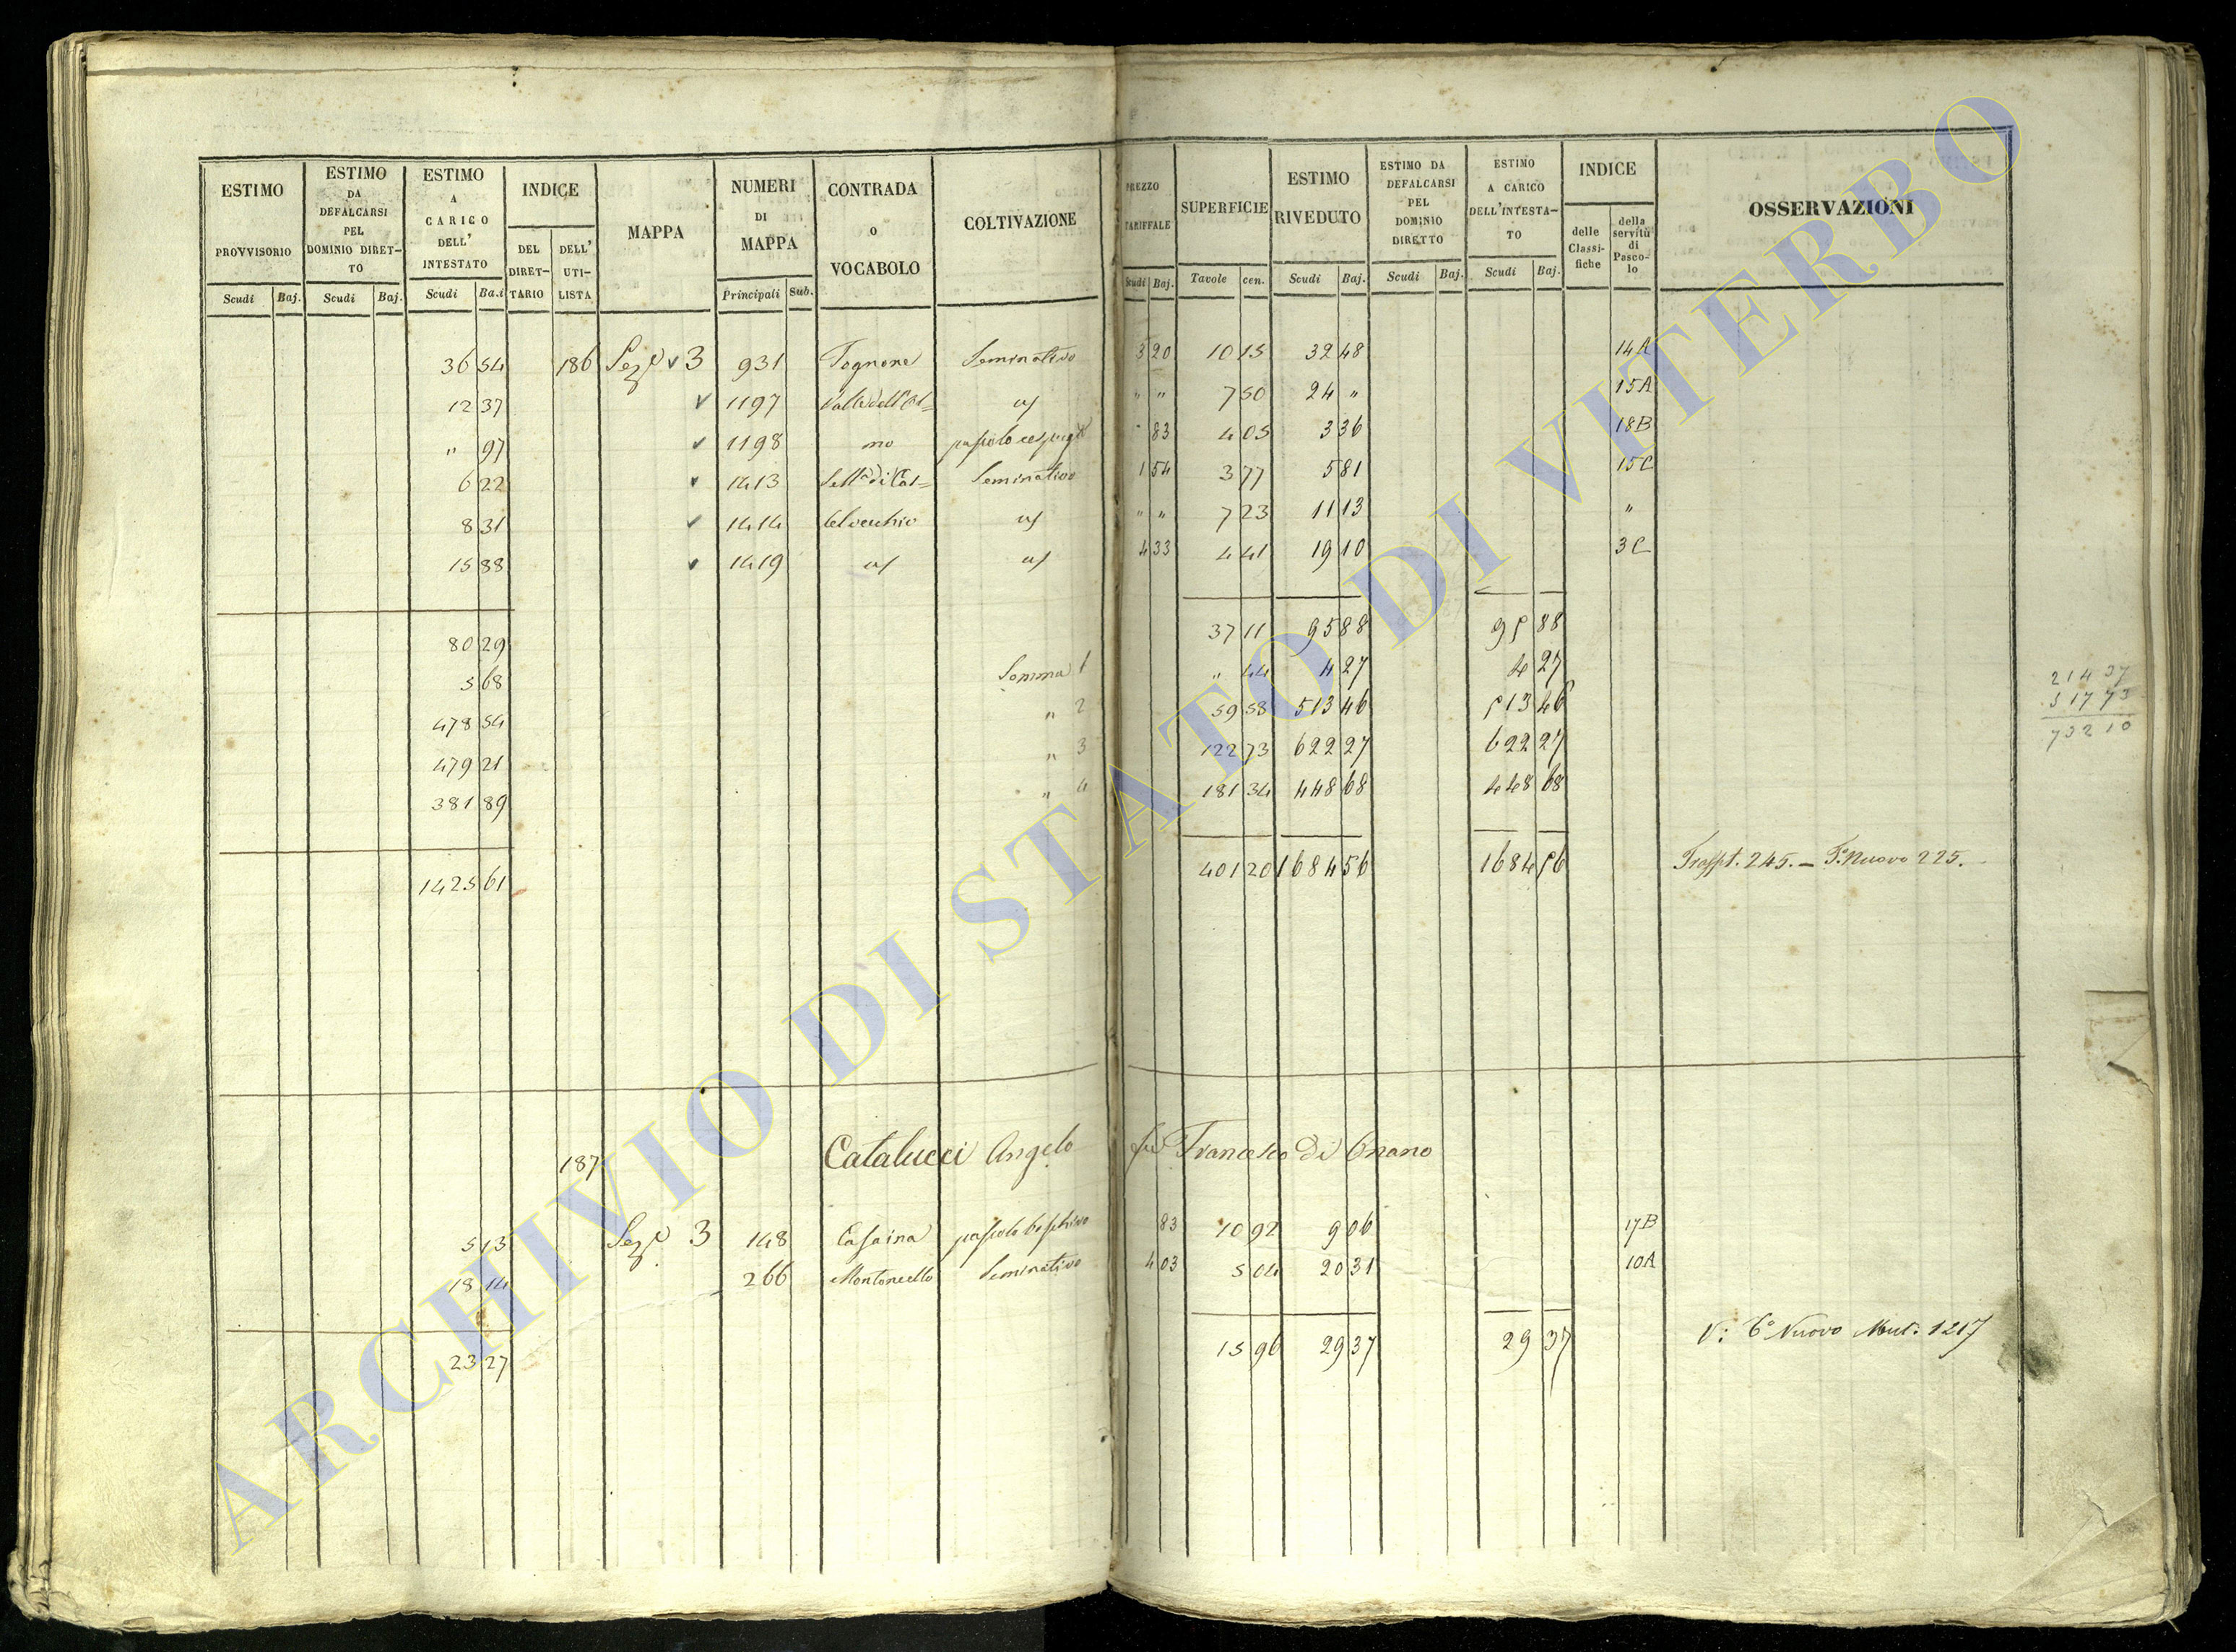 ESTIMO PROVVISORIO Scudi Baj.
ESTIMO DA DEFALCARSI PEL DOMINIO DIRET-TO Scudi Baj.
ESTIMO A CARICO DELL' INTESTATO Scudi Ba.i
INDICE DEL DIRET-TARIO DELL' UTI-LISTA
MAPPA
NUMERI DI MAPPA Principali Sub.
CONTRADA o VOCABOLO
COLTIVAZIONE
PREZZO TARIFFALE Scudi Baj.
SUPERFICIE Tavole cen.
ESTIMO RIVEDUTO Scudi Baj.
ESTIMO DA DEFALCARSI PEL DOMINIO DIRETTO Scudi Baj.
ESTIMO A CARICO DELL'INTESTA-TO Scudi Baj.
INDICE delle Classi-fiche della servitù di Pasco-lo
OSSERVAZIONI
36 54 186 Sez.e 3 931 Tognone Seminativo 3 20 10 15 32 48 14A
12 37 1197 Valle dell'Ol= " " 7 50 24 " 15A
" 97 1198 mo pascolo " 83 4 05 3 36 18B
6 22 1413 di Cas= Seminativo 1 54 3 77 5 81 15C
8 31 1414 telvecchio " " 7 23 11 13 "
15 88 1419 4 33 4 41 19 10 3C
80 29 37 11 95 88 95 88
5 68 Somma 1 " 44 4 27 4 27
478 54 " 2 59 58 513 46 513 46
479 21 " 3 122 73 622 27 622 27
381 89 " 4 181 34 448 68 448 68
1425 61 401 20 1684 56 1684 56 Traspt. 245. = T. Nuovo 225.
214 37
517 73
732 10
187 Catalucci Angelo fu Francesco di Onano
5 13 Sez.e 3 148 Casaina pascolo 83 10 92 9 06 17B
18 14 266 Montoncello Seminativo 4 03 5 04 20 31 10A
23 27 15 96 29 37 29 37 V: C.o Nuovo Mut: 1217
ARCHIVIO DI STATO DI VITERBO